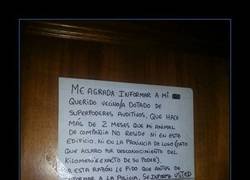 ME AGRADA INFORMAR A MI
QUERIDO VECINO/A DOTADO DE
SUPERPODERES AUDITIVOS, QUE HACE
MÁS DE 2 MESES QUE MI ANIMAL
DE COMPAÑIA NO RESIDE NI EN ESTE
EDIFICIO, NI EN LA PROVINCIA DE LUGO (DATO
QUE ACLARO POR DESCONOCIMIENTO DEL
KILOMETRAJE EXACTO DE SU PODER).
ESTA RAZÓN LE PIDO QUE ANTES DE
A LA POLICIA, SE INFORME USTED